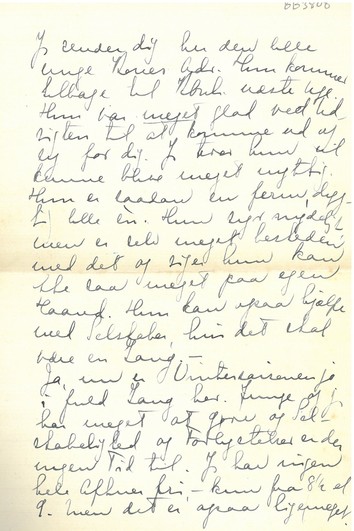 003800
Jeg sender dig her den lille
unge Kones Adr. Hun kommer
tilbage til Kbh. næste Uge.
Hun var meget glad ved Ud-
sigten til at komme ud og
sy for dig. Jeg tror hun vil
kunne blive meget nyttig.
Hun er saadan en ferm, dyg-
tig lille en. Hun syr nydeligt
men er selv meget beskeden
med det og siger hun kan
ikke saa meget paa egen
Haand. Hun kan ogsaa hjælpe
med Selskaber, hvis det skal
være en Gang. –
Ja, nu er Vintersaisonen jo
i fuld Gang her. Junge og jeg
har meget at gøre og Sel-
skabelighed og Forlystelser er der
ingen Tid til. Jeg har ingen
hele Aftner fri, – kun fra 8½ el
9. Men det er ogsaa ligemeget